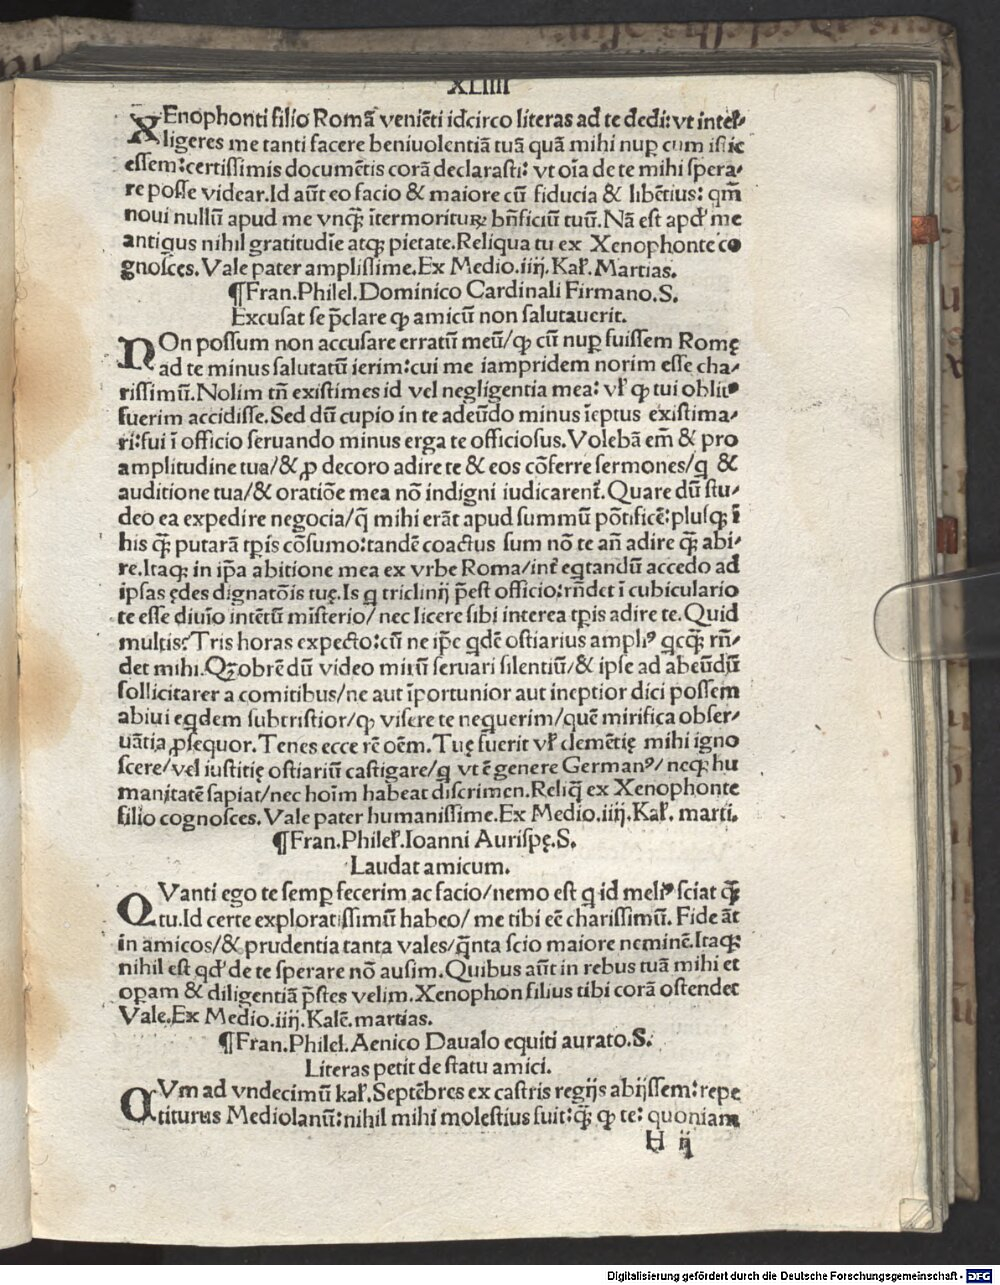 XLIIII
XEnophonti filio Romā veniēti idcirco literas ad te dedi: vt intel⸗
ligeres me tanti facere beniuolentiā tuā quā mihi nuꝑ cum istic
essem: certissimis documētis corā declarasti: vt oīa de te mihi spera⸗
re posse videar. Id aūt eo facio & maiore cū fiducia & libētius: qm̄
noui nullū apud me vnq̄ꝫ ītermorituꝝ bn̄ficiū tuū. Nā est apđ me
antiqus nihil gratitudīe atqꝫ pietate. Reliqua tu ex Xenophonte co
gnosces. Vale pater amplissime. Ex Medio. iiij. Kał. Martias.
¶Fran. Philel. Dominico Cardinali Firmano. S.
Excusat se p̄clare ꝙ amicū non salutauerit.
NOn possum non accusare erratū meū/ꝙ cū nuꝑ fuissem Romę
ad te minus salutatū ierim: cui me iampridem norim esse cha⸗
rissimū. Nolim tn̄ existimes id vel negligentia mea: vł ꝙ tui oblit⁹
fuerim accidisse. Sed dū cupio in te adeūdo minus īeptus existima⸗
ri: fui ī officio seruando minus erga te officiosus. Volebā em̄ & pro
amplitudine tua/& ꝓ decoro adire te & eos cōferre sermones/q &
auditione tua/& oratiōe mea nō indigni iudicarent᷑. Quare dū stu⸗
deo ea expedire negocia/q̄ mihi erāt apud summū pōtificē: plusqꝫ ī
his q̄ꝫ putarā tp̄is cōsumo: tandē coactus sum nō te an̄ adire q̄ꝫ abi⸗
re. Itaqꝫ in ip̄a abitione mea ex vrbe Roma/int᷑ eqtandū accedo ad
ipsas ędes dignatōis tuę. Is q triclinij p̄est officio: rn̄det ī cubiculario
te esse diuīo intētū misterio/ nec licere sibi interea tp̄is adire te. Quid
multis? Tris horas expecto: cū ne ip̄e qdē ostiarius ampli⁹ qcq̄ꝫ rn̄⸗
det mihi. Qꝫobrē dū video mirū seruari silentiū/& ipse ad abeūdū
sollicitarer a comitibus/ne aut īportunior aut ineptior dici possem
abiui eqdem subtristior/ꝙ visere te nequerim/quē mirifica obser⸗
uātia ꝓsequor. Tenes ecce rē oēm. Tuę fuerit vł clemētię mihi igno
scere/vel iustitię ostiariū castigare/q vt ē genere German⁹/ neqꝫ hu
manitatē sapiat/nec hoīm habeat discrimen. Reliq̄ ex Xenophonte
filio cognosces. Vale pater humanissime. Ex Medio. iiij. Kał. marti.
¶Fran. Phileł. Ioanni Aurispę. S.
Laudat amicum.
QVanti ego te semꝑ fecerim ac facio/nemo est q id meli⁹ sciat q̄ꝫ
tu. Id certe exploratissimū habeo/ me tibi eē charissimū. Fide āt
in amicos/& prudentia tanta vales/q̄nta scio maiore neminē. Itaqꝫ
nihil est qđ de te sperare nō ausim. Quibus aūt in rebus tuā mihi et
opam & diligentiā p̄stes velim. Xenophon filius tibi corā ostendet
Vale. Ex Medio. iiij. Kalē. martias.
¶Fran. Philel. Aenico Daualo equiti aurato. S.
Literas petit de statu amici.
CVm ad vndecimū kał. Septēbres ex castris regijs abijssem: repe
titurus Mediolanū: nihil mihi molestius fuit: q̄ꝫ ꝙ te: quoniam
H ij
Digitalisierung gefördert durch die Deutsche Forschungsgemeinschaft - DFG